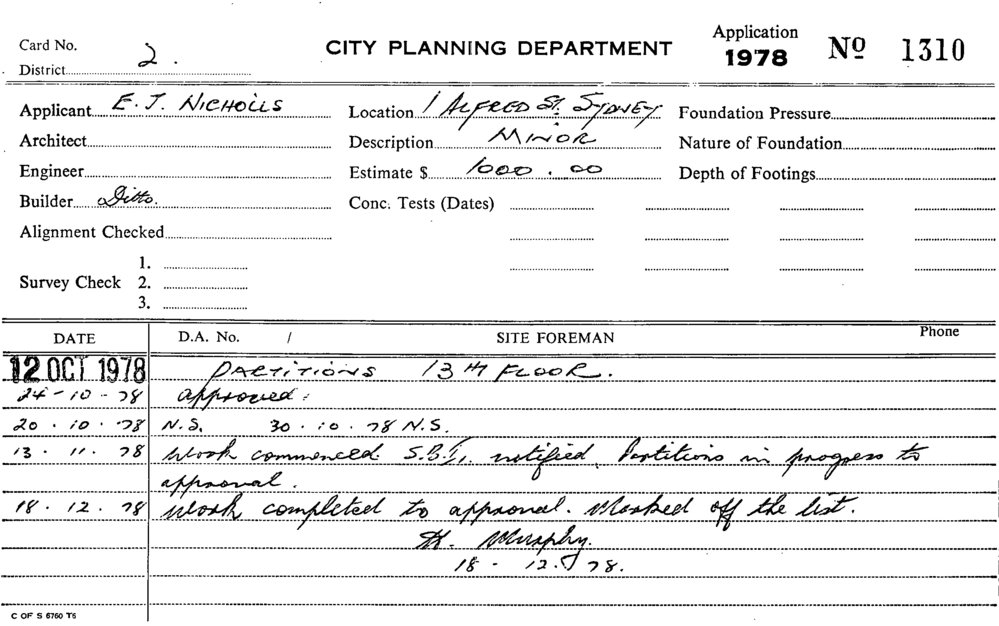 Card No.
District 2.
CITY PLANNING DEPARTMENT
Application
1978
No 1310
Applicant E. J. NICHOLLS
Location 1 ALFRED ST. SYDNEY
Foundation Pressure
Architect
Description MINOR
Nature of Foundation
Engineer
Estimate $ 1000.00
Depth of Footings
Builder Ditto.
Conc. Tests (Dates)
Alignment Checked
Survey Check
1.
2.
3.
DATE
D.A. No. /
SITE FOREMAN
Phone
12 OCT 1978 PARTITIONS 13TH FLOOR.
24-10-78 approved:
20.10.78 N.S. 30.10.78 N.S.
13.11.78 Work commenced. S.B.I. notified. Partitions in progress to
approval.
18.12.78 Work completed to approval. Marked off the list.
Murphy.
18-12.78.
C OF S 6760 T6